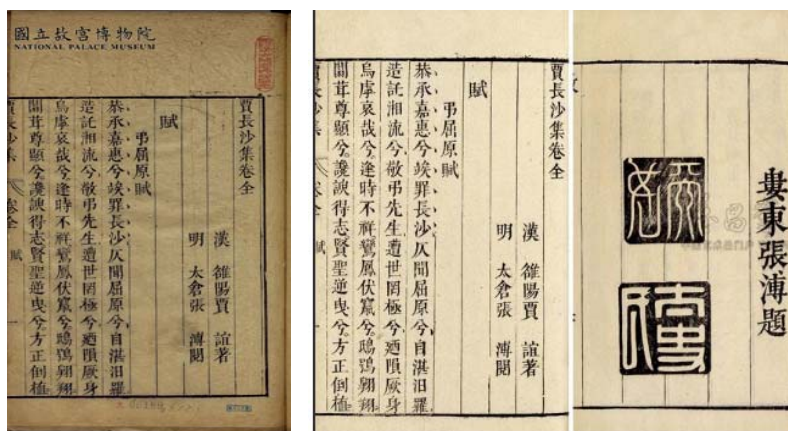 國立故宮博物院
NATIONAL PALACE MUSEUM
賈長沙集卷全
漢 雒陽賈 誼著
明 太倉張 溥閱
賦
弔屈原賦
恭承嘉惠兮竢罪長沙仄聞屈原兮自湛汨羅
造託湘流兮敬弔先生遭世罔極兮廼隕厥身
烏虖哀哉兮逢時不祥鸞鳳伏竄兮鴟鴞翱翔
闒茸尊顯兮讒諛得志賢聖逆曳兮方正倒植
賈長沙集 卷全 賦 一
賈長沙集卷全
漢 雒陽賈 誼著
明 太倉張 溥閱
賦
弔屈原賦
恭承嘉惠兮竢罪長沙仄聞屈原兮自湛汨羅
造託湘流兮敬弔先生遭世罔極兮廼隕厥身
烏虖哀哉兮逢時不祥鸞鳳伏竄兮鴟鴞翱翔
闒茸尊顯兮讒諛得志賢聖逆曳兮方正倒植
賈長沙集 卷全 賦 一
婁東張溥題